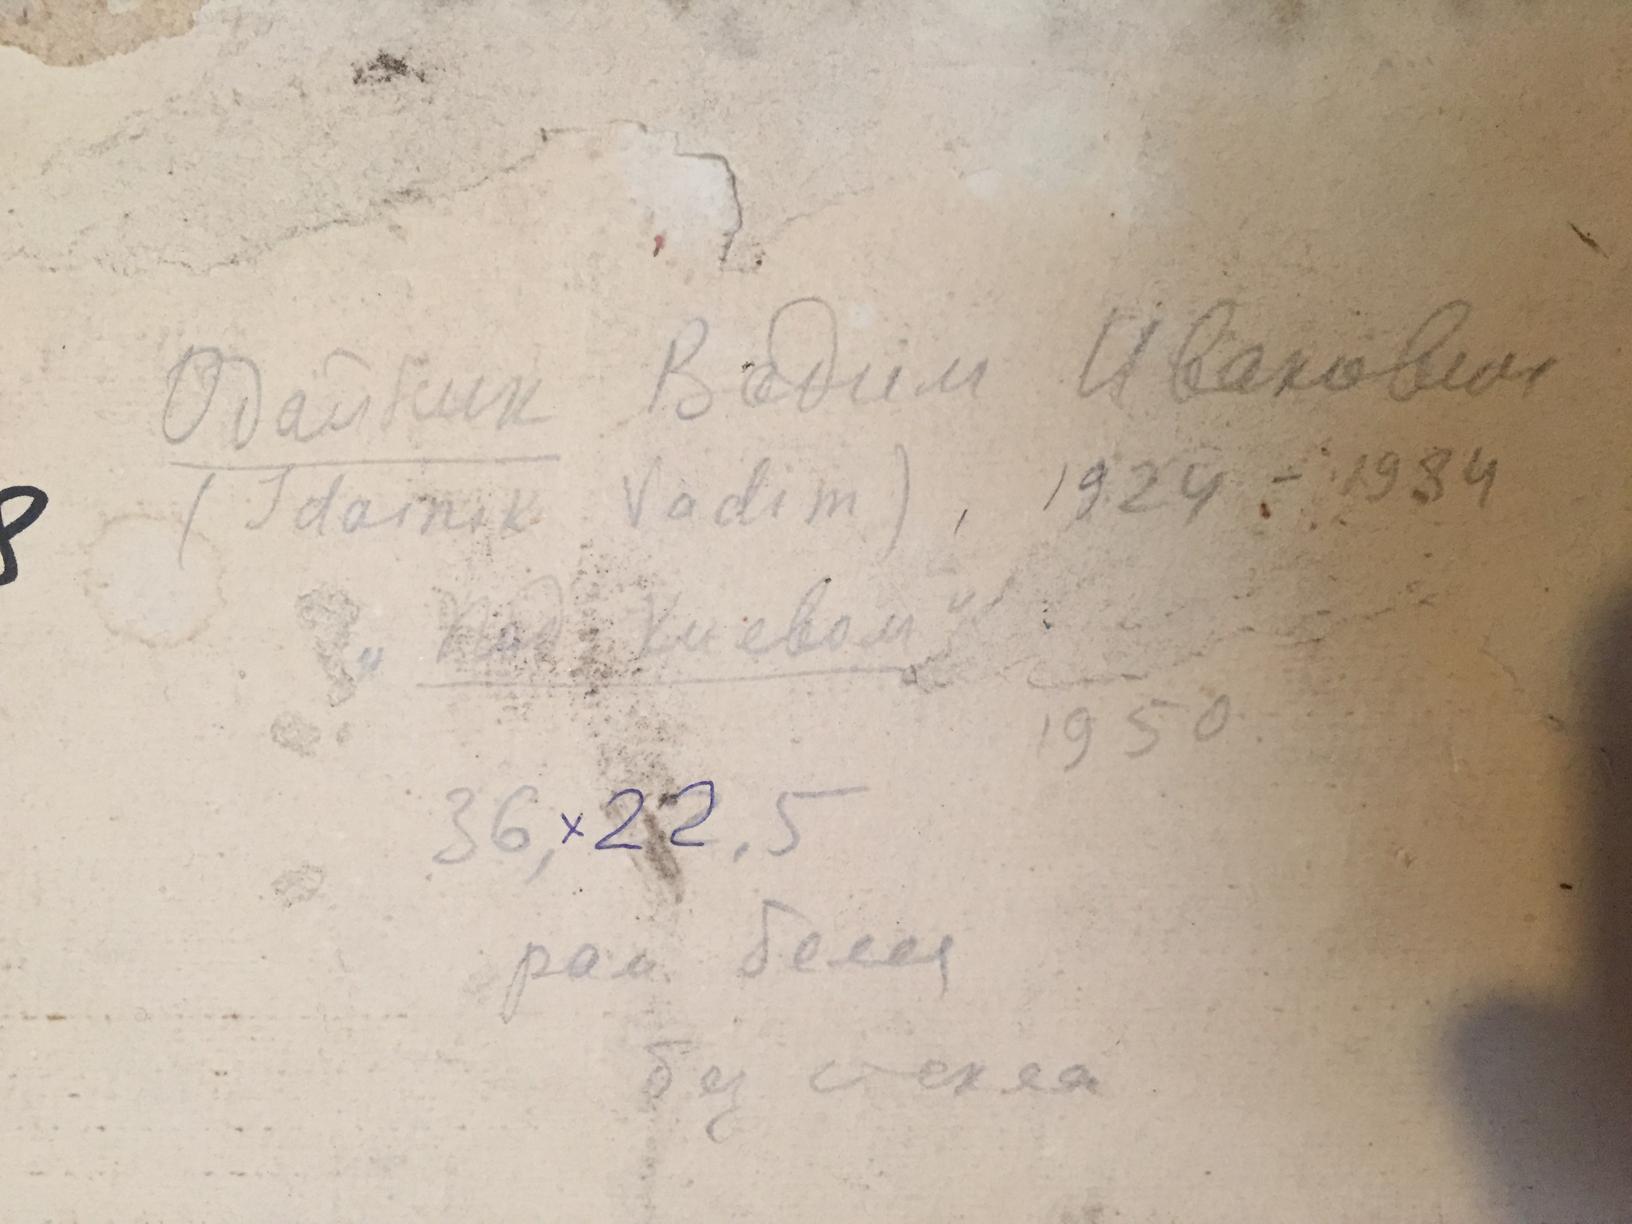 Одайник Вадим Иванович
(Idainik Vadim), 1924 - 1984
8
„Под Киевом"
1950.
36,×22,5
рам белая
без стекла